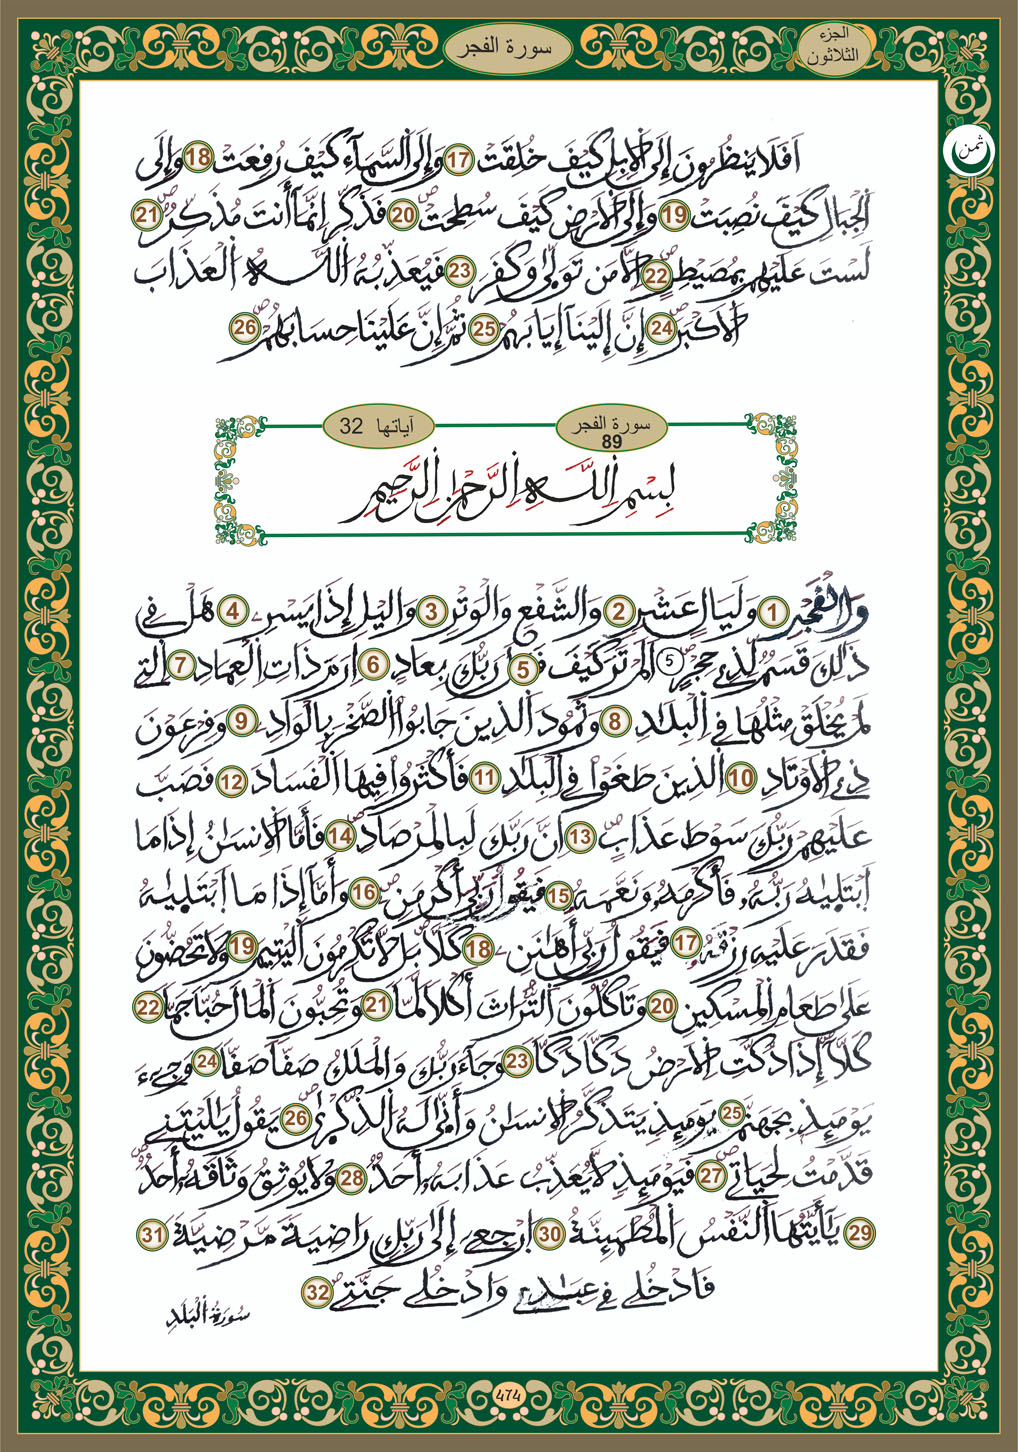 الجزء
الثلاثون
سورة الفجر
ثمن
أفلا ينظرون إلى الابل كيف خلقت 17 وإلى السماء كيف رفعت 18 وإلى
الجبال كيف نصبت 19 وإلى الارض كيف سطحت 20 فذكر إنما أنت مذكر 21
لست عليهم بمصيطر 22 إلا من تولى وكفر 23 فيعذبه الله العذاب
الاكبر 24 إن إلينا إيابهم 25 ثم إن علينا حسابهم 26
سورة الفجر
89
آياتها 32
بسم الله الرحمن الرحيم
والفجر 1 وليال عشر 2 والشفع والوتر 3 واليل إذا يسر 4 هل في
ذلك قسم لذي حجر 5 ألم تر كيف فعل ربك بعاد 6 إرم ذات العماد 7 التي
لم يخلق مثلها في البلد 8 وثمود الذين جابوا الصخر بالواد 9 وفرعون
ذي الاوتاد 10 الذين طغوا في البلد 11 فأكثروا فيها الفساد 12 فصب
عليهم ربك سوط عذاب 13 إن ربك لبالمرصاد 14 فأما الانسن إذا ما
ابتليه ربه فأكرمه ونعمه 15 فيقول ربي أكرمن 16 وأما إذا ما ابتليه
فقدر عليه رزقه 17 فيقول ربي أهنن 18 كلا بل لا تكرمون اليتيم 19 ولا تحضون
على طعام المسكين 20 وتاكلون التراث أكلا لما 21 وتحبون المال حبا جما 22
كلا إذا دكت الارض دكا دكا 23 وجاء ربك والملك صفا صفا 24 وجيء
يومئذ بجهنم 25 يومئذ يتذكر الانسن وأنى له الذكرى 26 يقول يليتني
قدمت لحياتي 27 فيومئذ لا يعذب عذابه أحد 28 ولا يوثق وثاقه أحد
29 يأيتها النفس المطمئنة 30 ارجعي إلى ربك راضية مرضية 31
فادخلي في عبدي وادخلي جنتي 32
سورة البلد
474